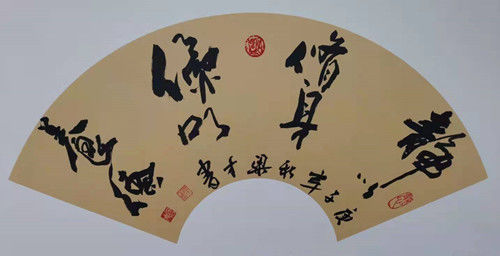 静以
脩身
儉以
養德
庚子年秋梁才書